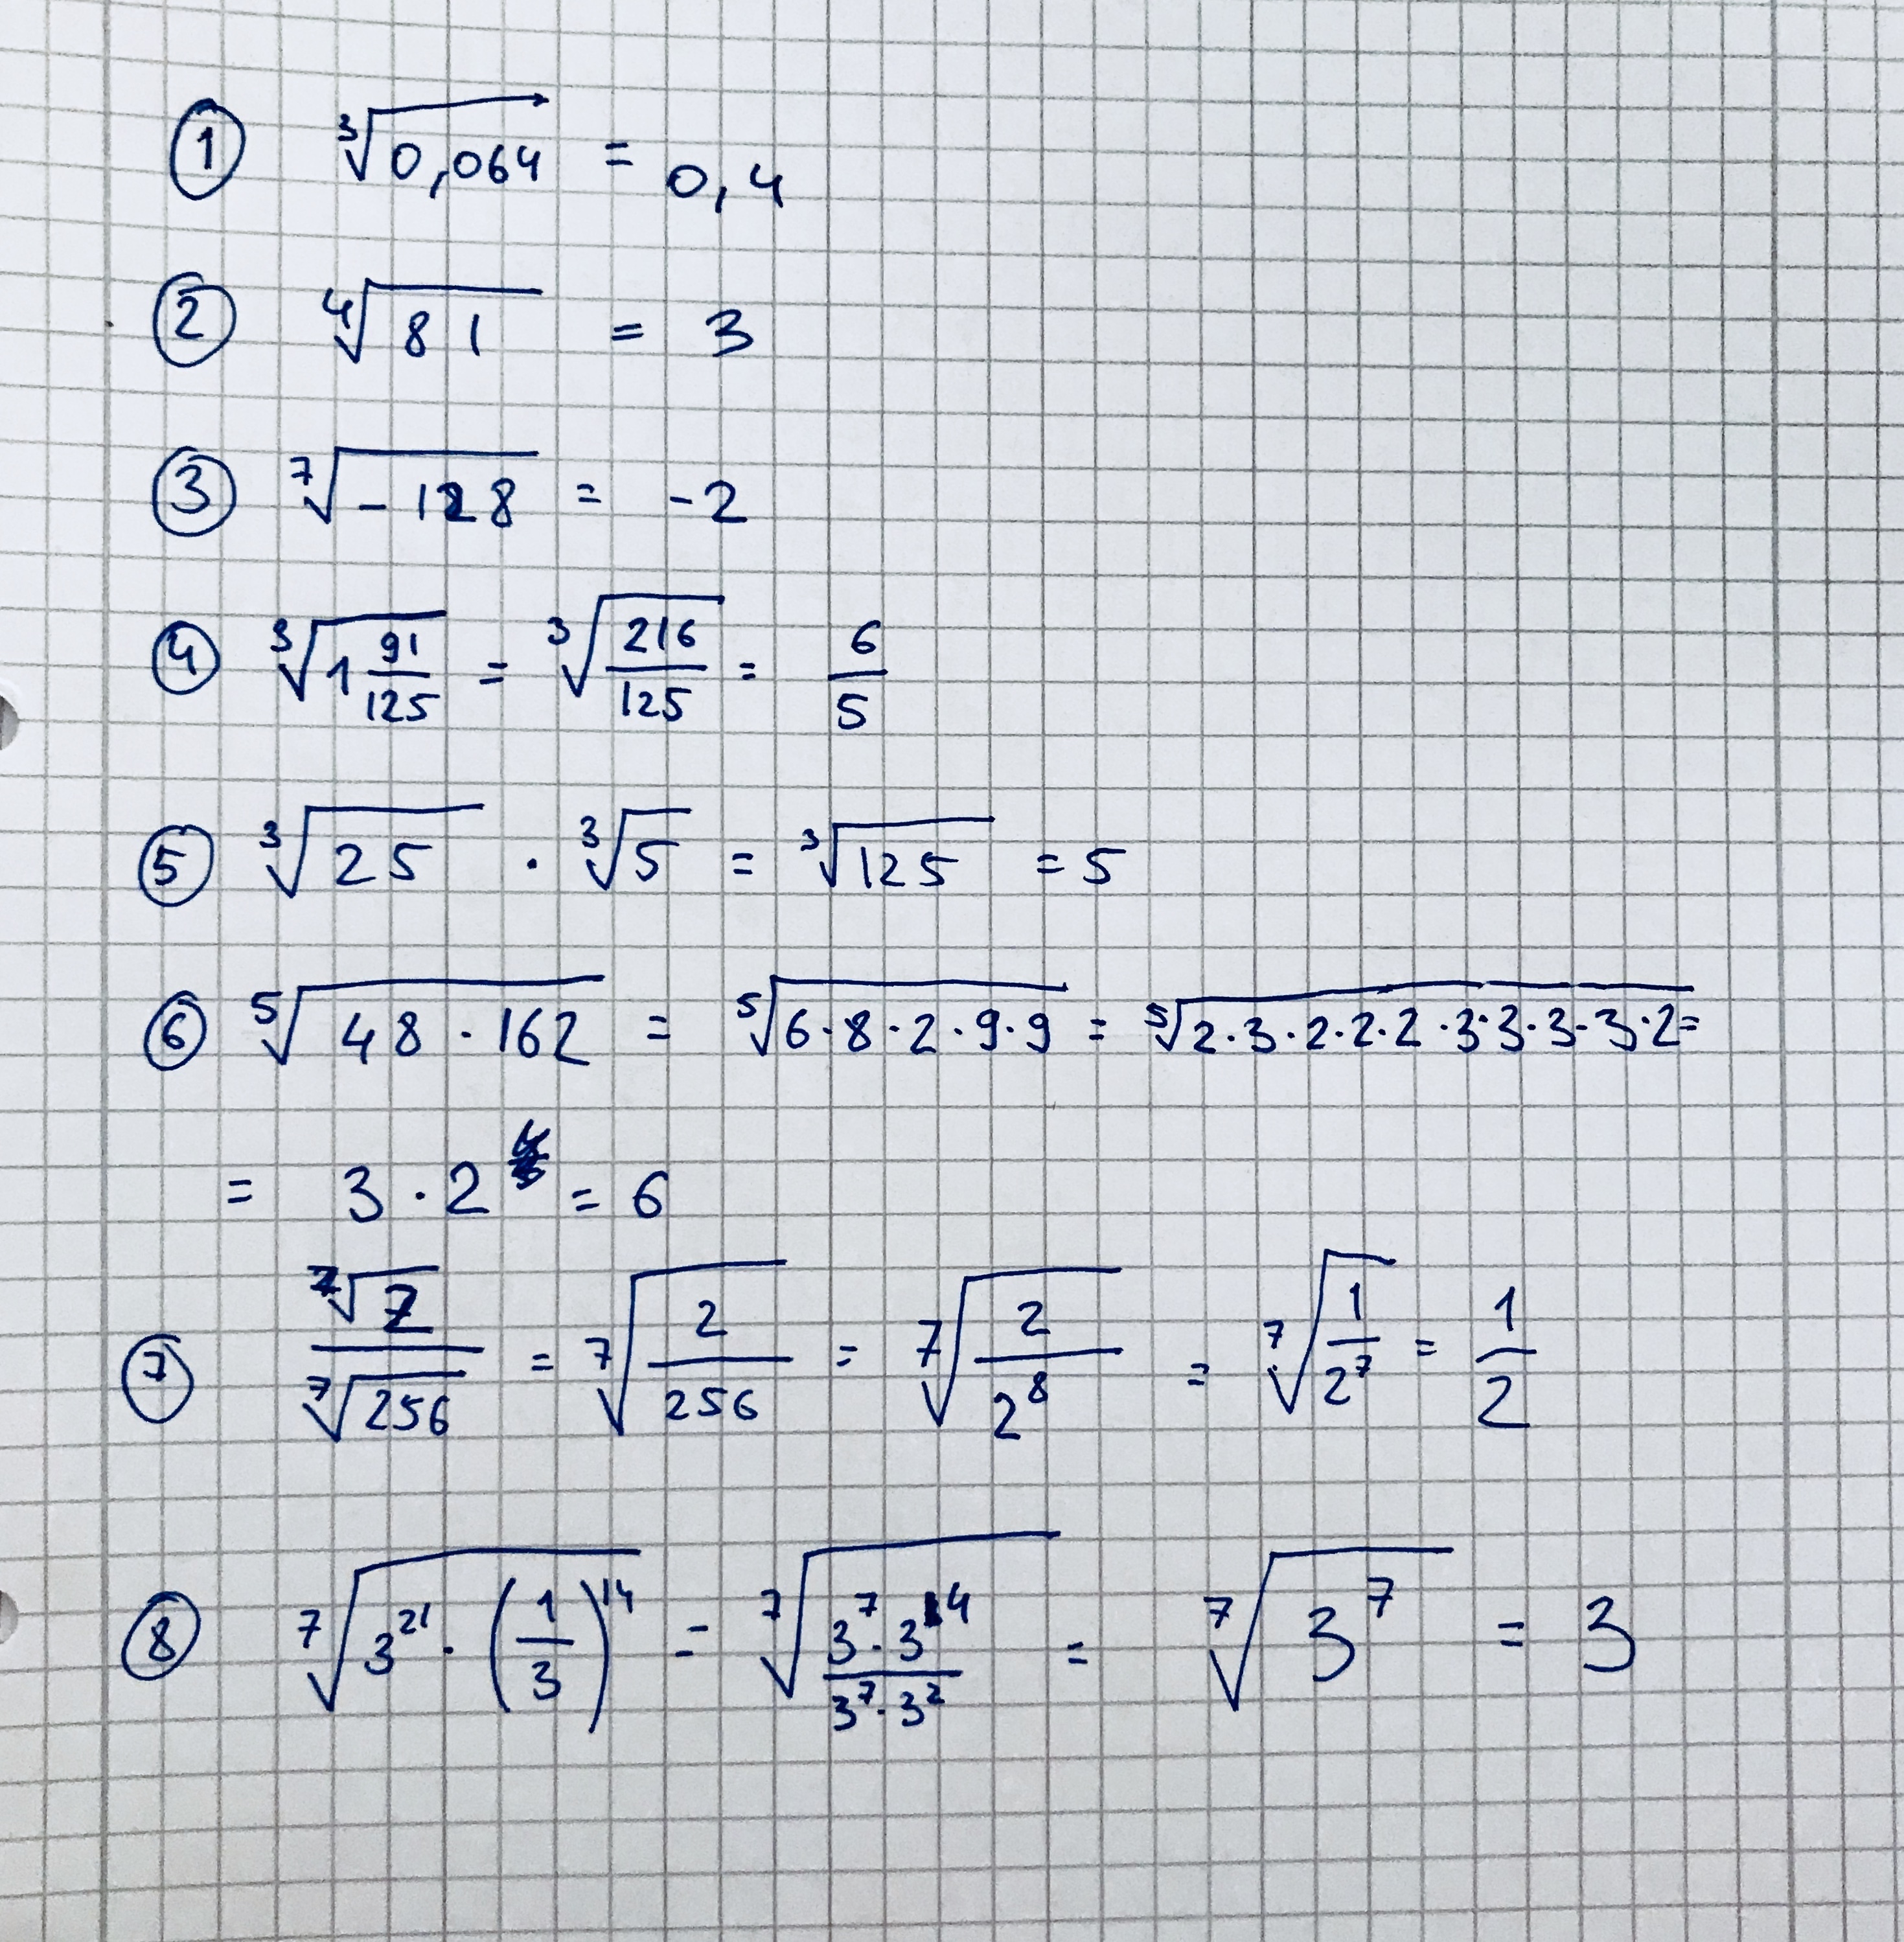 ① ∛0,064 = 0,4
② ∜81 = 3
③ ⁷√-128 = -2
④ ∛(1 91/125) = ∛(216/125) = 6/5
⑤ ∛25 · ∛5 = ∛125 = 5
⑥ ⁵√(48 · 162) = ⁵√(6·8·2·9·9) = ⁵√(2·3·2·2·2·3·3·3·3·2) =
= 3 · 2 = 6
⑦ ⁷√2 / ⁷√256 = ⁷√(2/256) = ⁷√(2/2⁸) = ⁷√(1/2⁷) = 1/2
⑧ ⁷√(3²¹ · (1/3)¹⁴) = ⁷√((3⁷·3¹⁴)/(3⁷·3²)) = ⁷√3⁷ = 3